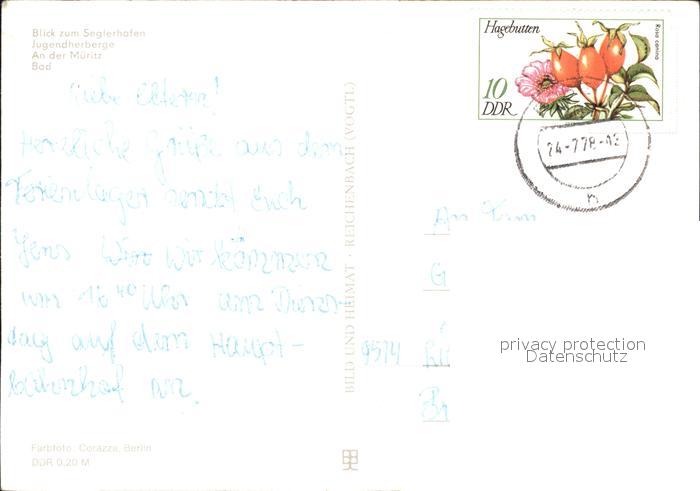 Blick zum Seglerhafen
Jugendherberge
An der Müritz
Bad
Hagebutten
Rosa canina
10
DDR
24-7.78-
Liebe Eltern!
Herzliche Grüße aus dem
Ferienlager sendet Euch
Jens Wir
um 16 40 Uhr am Diens-
tag auf dem Haupt-
bahnhof an.
BILD UND HEIMAT · REICHENBACH (VOGTL)
An Fam
G
9514
privacy protection
Datenschutz
Farbfoto: Corazza, Berlin
DDR 0,20 M